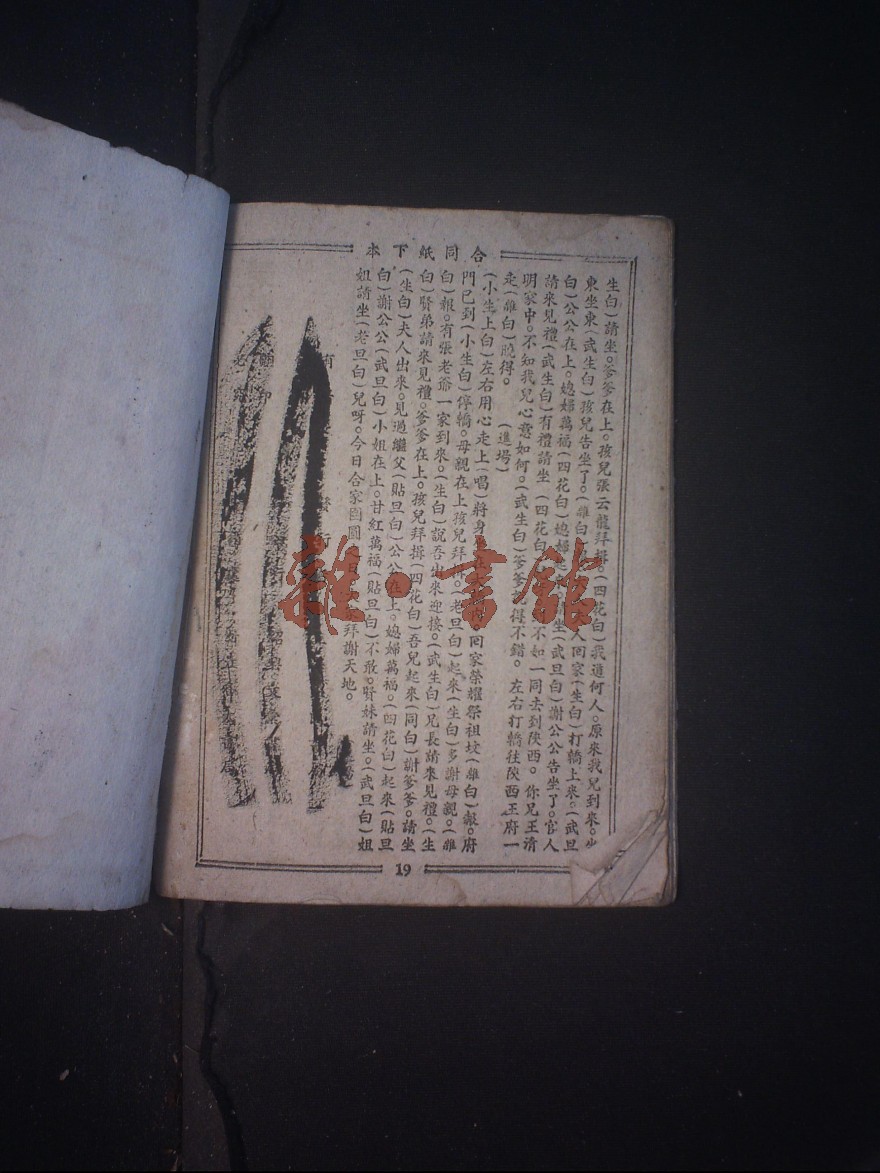 合同紙下本
生白)請坐。爹爹在上。孩兒張云龍拜揖(四花白)我道何人。原來我兒到來。坐
東坐東(武生白)孩兒告坐了。(雜白 人回家(生白)打轎上來。(武旦
白)公公在上。媳婦萬福(四花白)媳婦 坐(武旦白)謝公公告坐了。官人
請來見禮(武生白)有禮請坐(四花白 不如一同去到陝西。你兄王清
明家中。不知我兒心意如何。(武生白)爹爹 得不錯。左右打轎往陝西王府一
走(雜白)曉得。 (進場)
(小生上白)左右用心走上(唱)將身 回家榮耀祭祖坟(雜白)報。府
門已到(小生白)停轎。母親在上孩兒拜揖。(老旦白)起來(生白)多謝母親。(雜
白)報。有張老爺一家到來。(生白)說吾出來迎接。(武生白)兄長請來見禮。(生
白)賢弟請來見禮。爹爹在上。孩兒拜揖(四花白)吾兒起來(同白)謝爹爹。請坐
(生白)夫人出來。見過繼父(貼旦白)公公在上。媳婦萬福。(四花白)起來(貼旦
白)謝公公(武旦白)小姐在上。甘紅萬福(貼旦白)不敢。賢妹請坐。(武旦白)姐
姐請坐(老旦白)兒呀。今日合家團圓 拜謝天地。
19
雜·書館